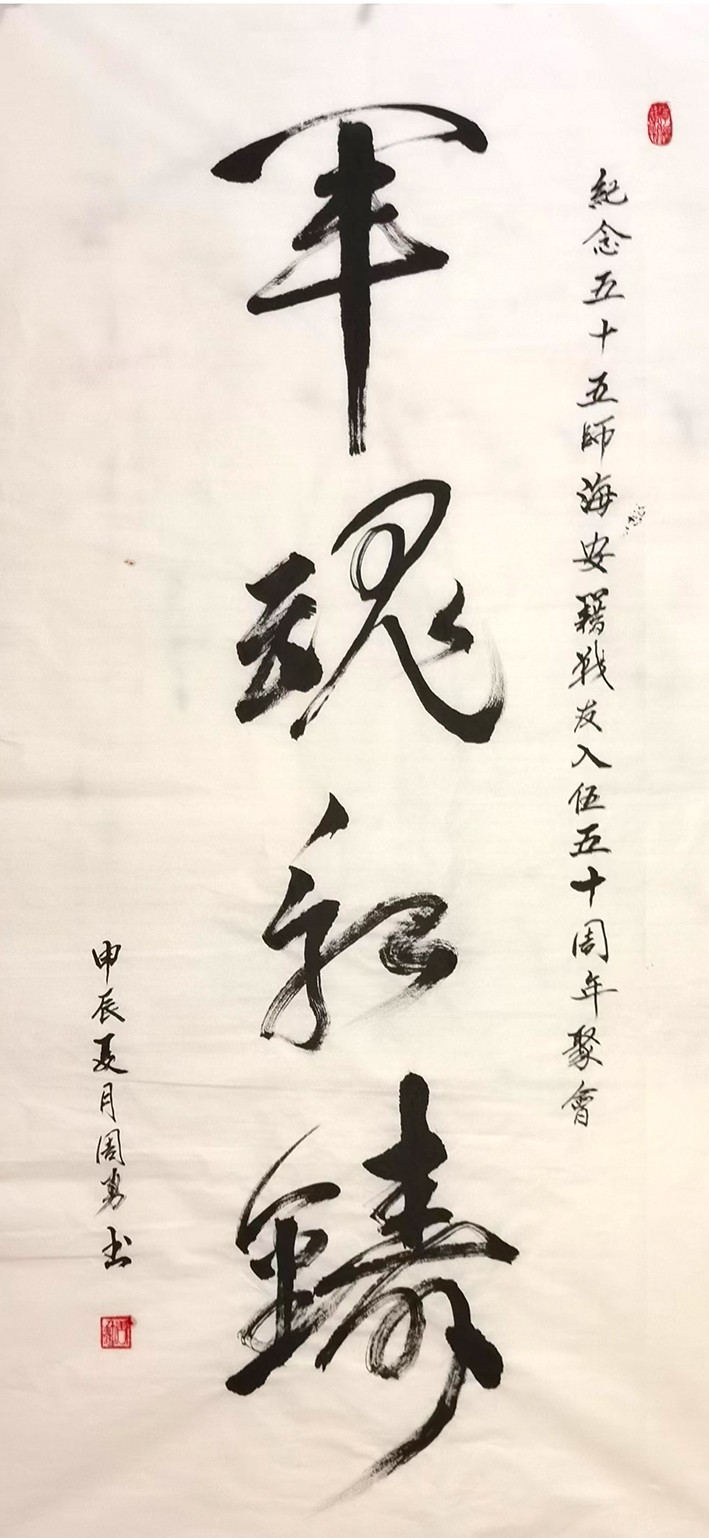 軍魂永鑄
紀念五十五師海安籍戰友入伍五十周年聚會
甲辰夏月周勇书